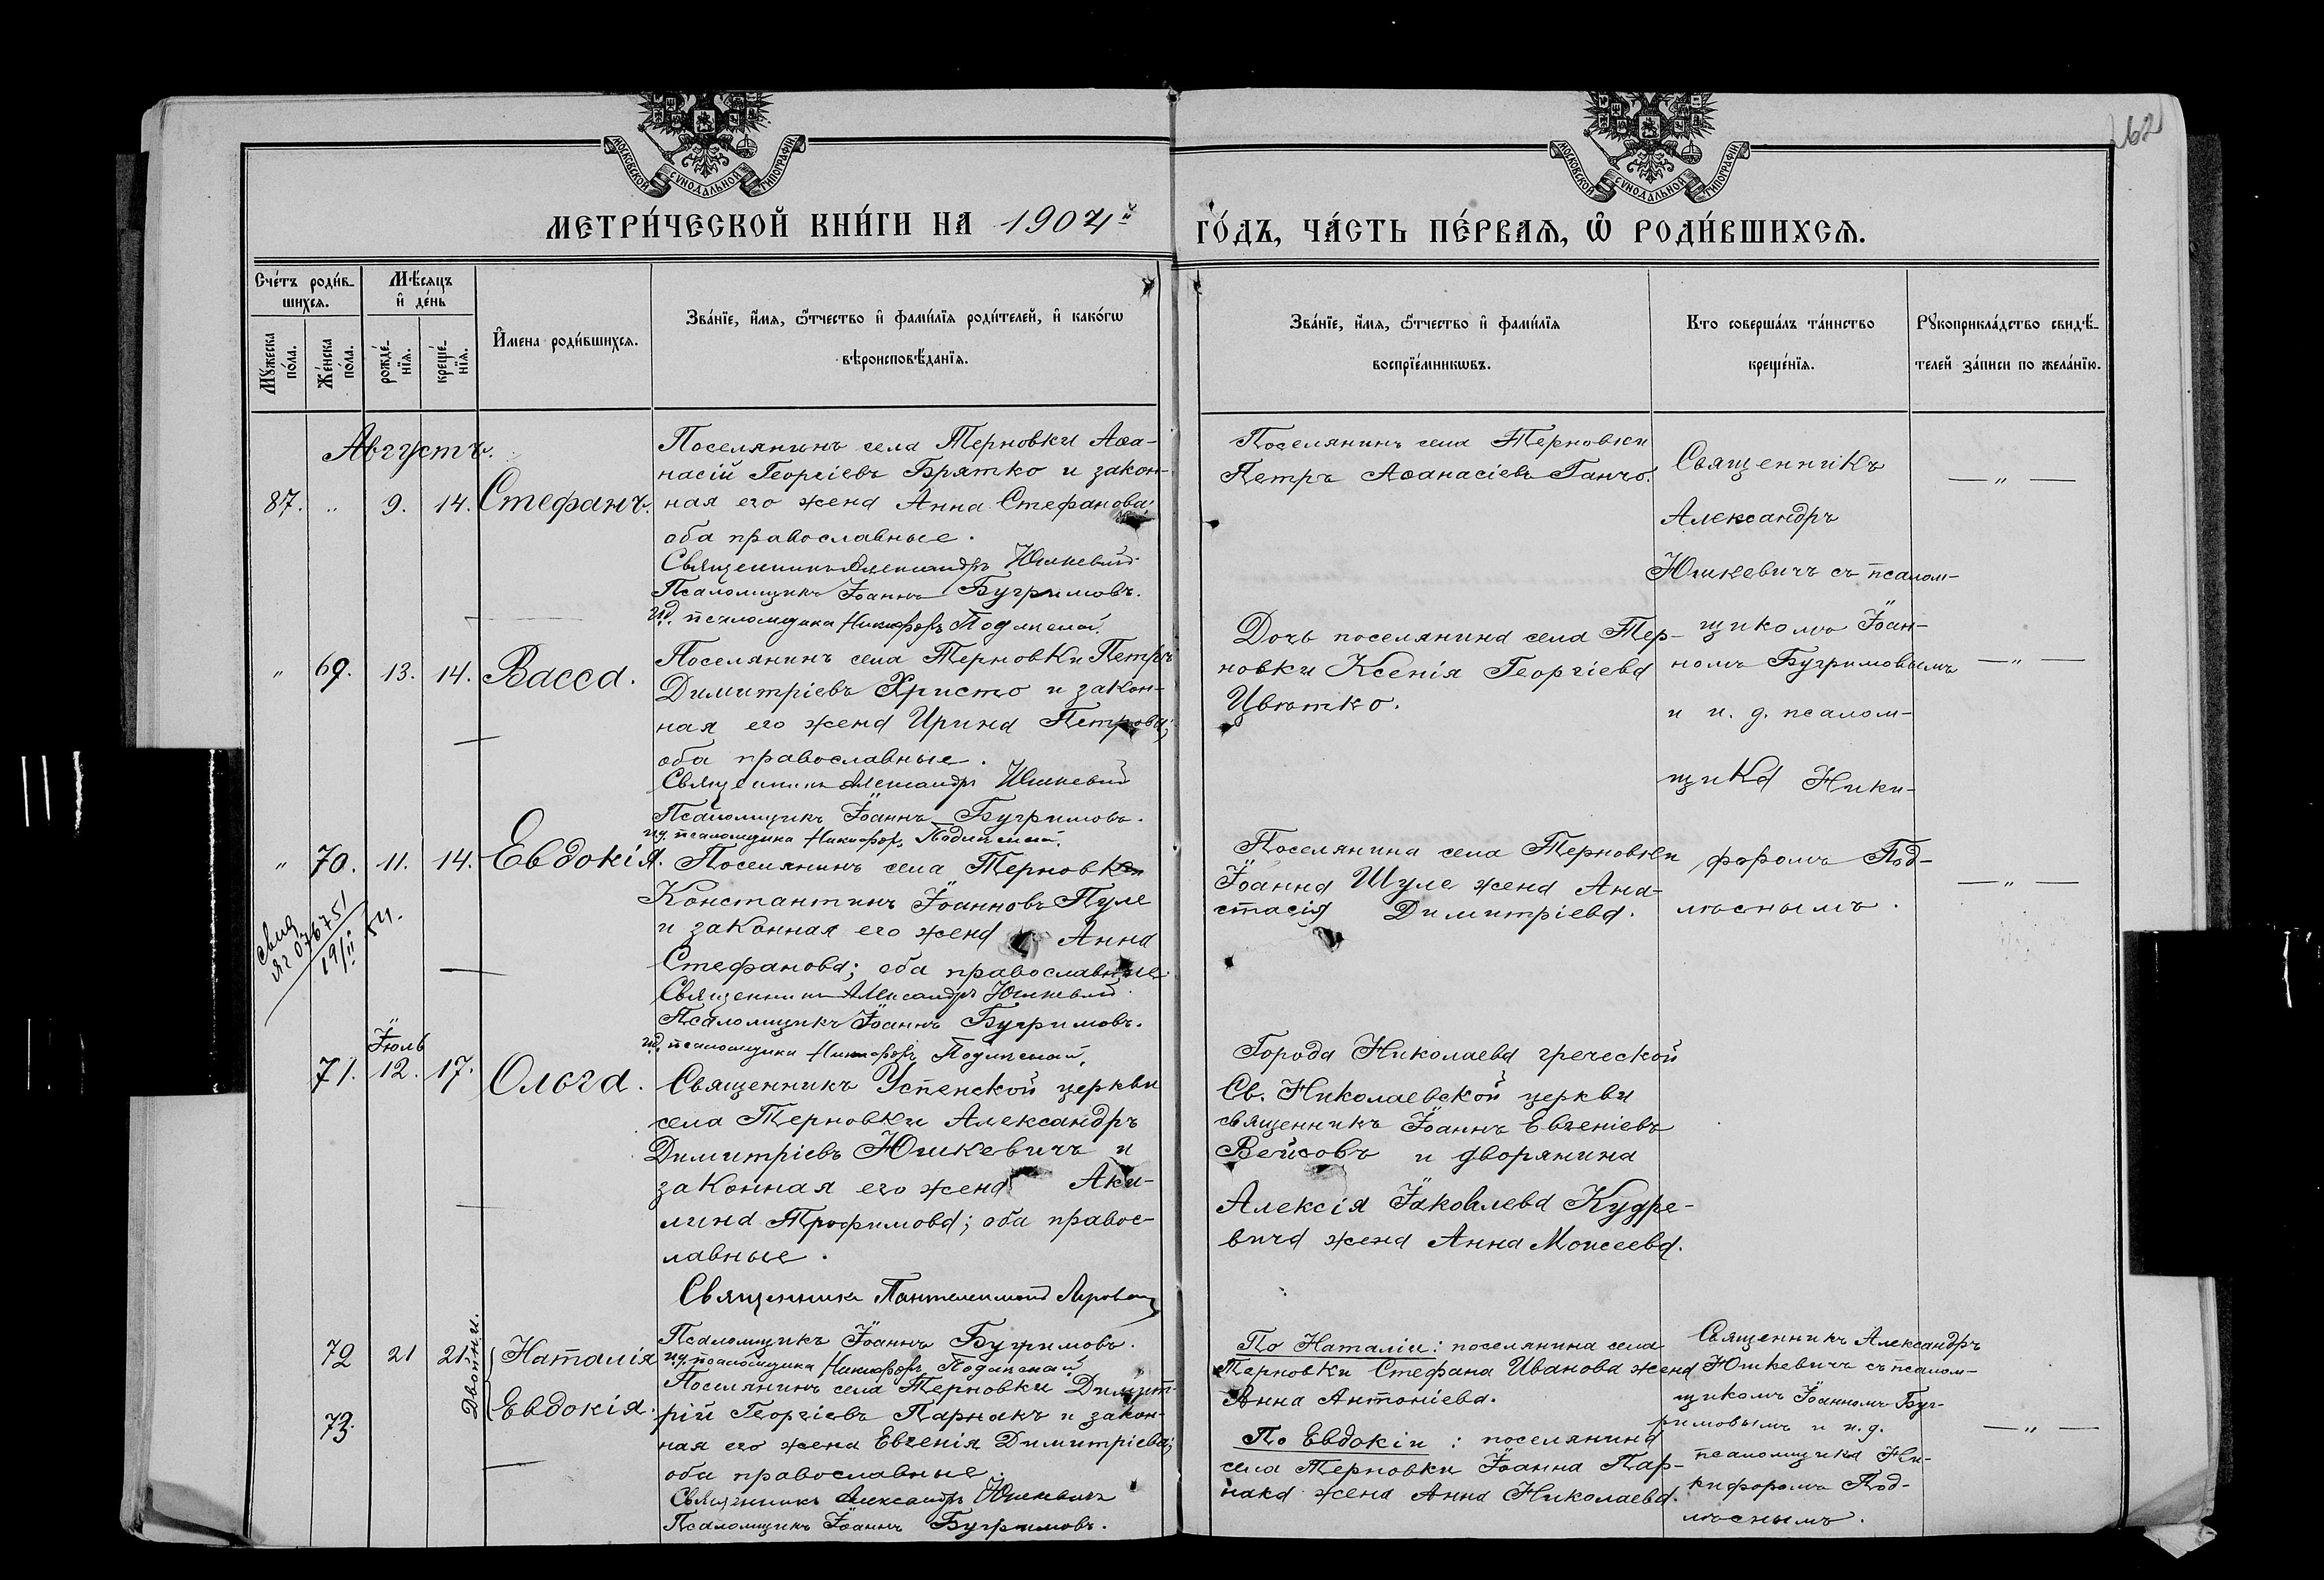 МОСКОВСКОЙ СѴНОДАЛЬНОЙ ТИПОГРАФІИ
МОСКОВСКОЙ СѴНОДАЛЬНОЙ ТИПОГРАФІИ
62
МЕТРИ́ЧЕСКОЙ КНИ́ГИ НА 1904й
ГО́ДЪ, ЧА́СТЬ ПЕ́РВАѦ, Ѽ РОДИ́ВШИХСѦ.
Сче́тъ роди́в-
шихсѧ.
Мꙋжеска по́ла.
Же́нска по́ла.
Мѣ́сѧцъ
и҆ де́нь
рожде́-
нїѧ.
креще́-
нїѧ.
И҆мена роди́вшихсѧ.
Зва́нїе, и҆́мѧ, ѻ҆́тчество и҆ фами́лїѧ роди́телей, и҆ како́гѡ
вѣроисповѣ́данїѧ.
Зва́нїе, и҆́мѧ, ѻ҆́тчество и҆ фами́лїѧ
воспрїе́мникѡвъ.
Кто соверша́лъ та́инство
креще́нїѧ.
Рꙋкоприкла́дство свидѣ́-
телей за́писи по жела́нїю.
Августъ.
87. " 9. 14. Стефанъ.
Поселянинъ села Терновки Аѳа-
насій Георгіевъ Брятко и закон-
ная его жена Анна Стефанова;
оба православные.
Священникъ Александръ Юшкевичъ
Псаломщикъ Іоаннъ Бугримовъ.
И.д. псаломщика Никифоръ Подлѣсный.
Поселянинъ села Терновки
Петръ Аѳанасіевъ Ганчо.
Священникъ
Александръ
Юшкевичъ съ псалом-
щикомъ Іоан-
номъ Бугримовымъ
и и. д. псалом-
щика Ники-
форомъ Под-
лѣснымъ.
— " —
" 69. 13. 14. Васса.
Поселянинъ села Терновки Петръ
Димитріевъ Христо и закон-
ная его жена Ирина Петрова;
оба православные.
Священникъ Александръ Юшкевичъ
Псаломщикъ Іоаннъ Бугримовъ.
и.д. псаломщика Никифоръ Подлѣсный.
Дочь поселянина села Тер-
новки Ксенія Георгіева
Цвѣтко.
— " —
" 70. 11. 14. Евдокія.
Поселянинъ села Терновки
Константинъ Іоанновъ Пуле
и законная его жена Анна
Стефанова; оба православные.
Священникъ Александръ Юшкевичъ.
Псаломщикъ Іоаннъ Бугримовъ.
и.д. псаломщика Никифоръ Подлѣсный.
Поселянина села Терновки
Іоанна Шуле жена Ана-
стасія Димитріева.
— " —
076751
19/II 54.
Іюль
71. 12. 17. Ольга.
Священникъ Успенской церкви
села Терновки Александръ
Димитріевъ Юшкевичъ и
законная его жена Аки-
лина Трофимова; оба правос-
лавные.
Священникъ Пантелеимонъ
Псаломщикъ Іоаннъ Бугримовъ.
и.д. псаломщика Никифоръ Подлѣсный.
Города Николаева греческой
Св. Николаевской церкви
священникъ Іоаннъ Евгеніевъ
Вейсовъ и дворянина
Алексія Іаковлева Кудре-
вича жена Анна Моисеева.
72 21 21. Двойни. Наталія
73. Евдокія.
Поселянинъ села Терновки Димит-
рій Георгіевъ Парнакъ и закон-
ная его жена Евгенія Димитріева;
оба православные.
Священникъ Александръ Юшкевичъ
Псаломщикъ Іоаннъ Бугримовъ.
По Наталіи: поселянина села
Терновки Стефана Иванова жена
Анна Антоніева.
По Евдокіи: поселянина
села Терновки Іоанна Пар-
нака жена Анна Николаева.
Священникъ Александръ
Юшкевичъ съ псалом-
щикомъ Іоанномъ Буг-
римовымъ и и.д.
псаломщика Ни-
кифоромъ Под-
лѣснымъ.
— " —